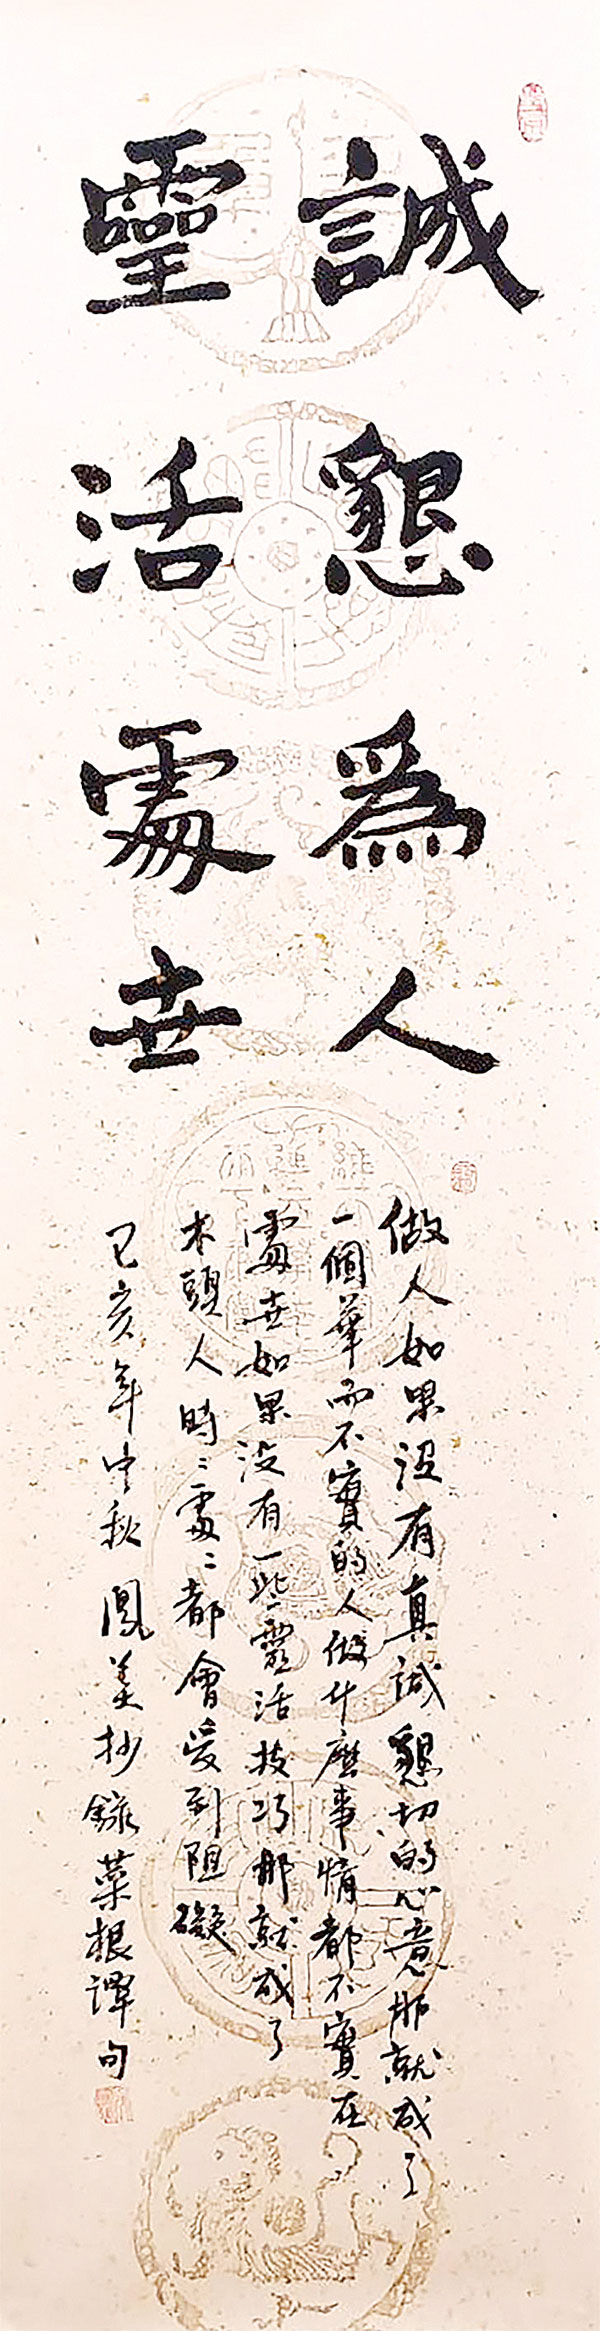 誠懇爲人
靈活處世
做人如果沒有真誠懇切的心意那就成了
一個華而不實的人做什麼事情都不實在
處世如果沒有一些靈活技巧那就成了
木頭人時:處:都會受到阻礙
己亥年中秋鳳美抄錄菜根譚句